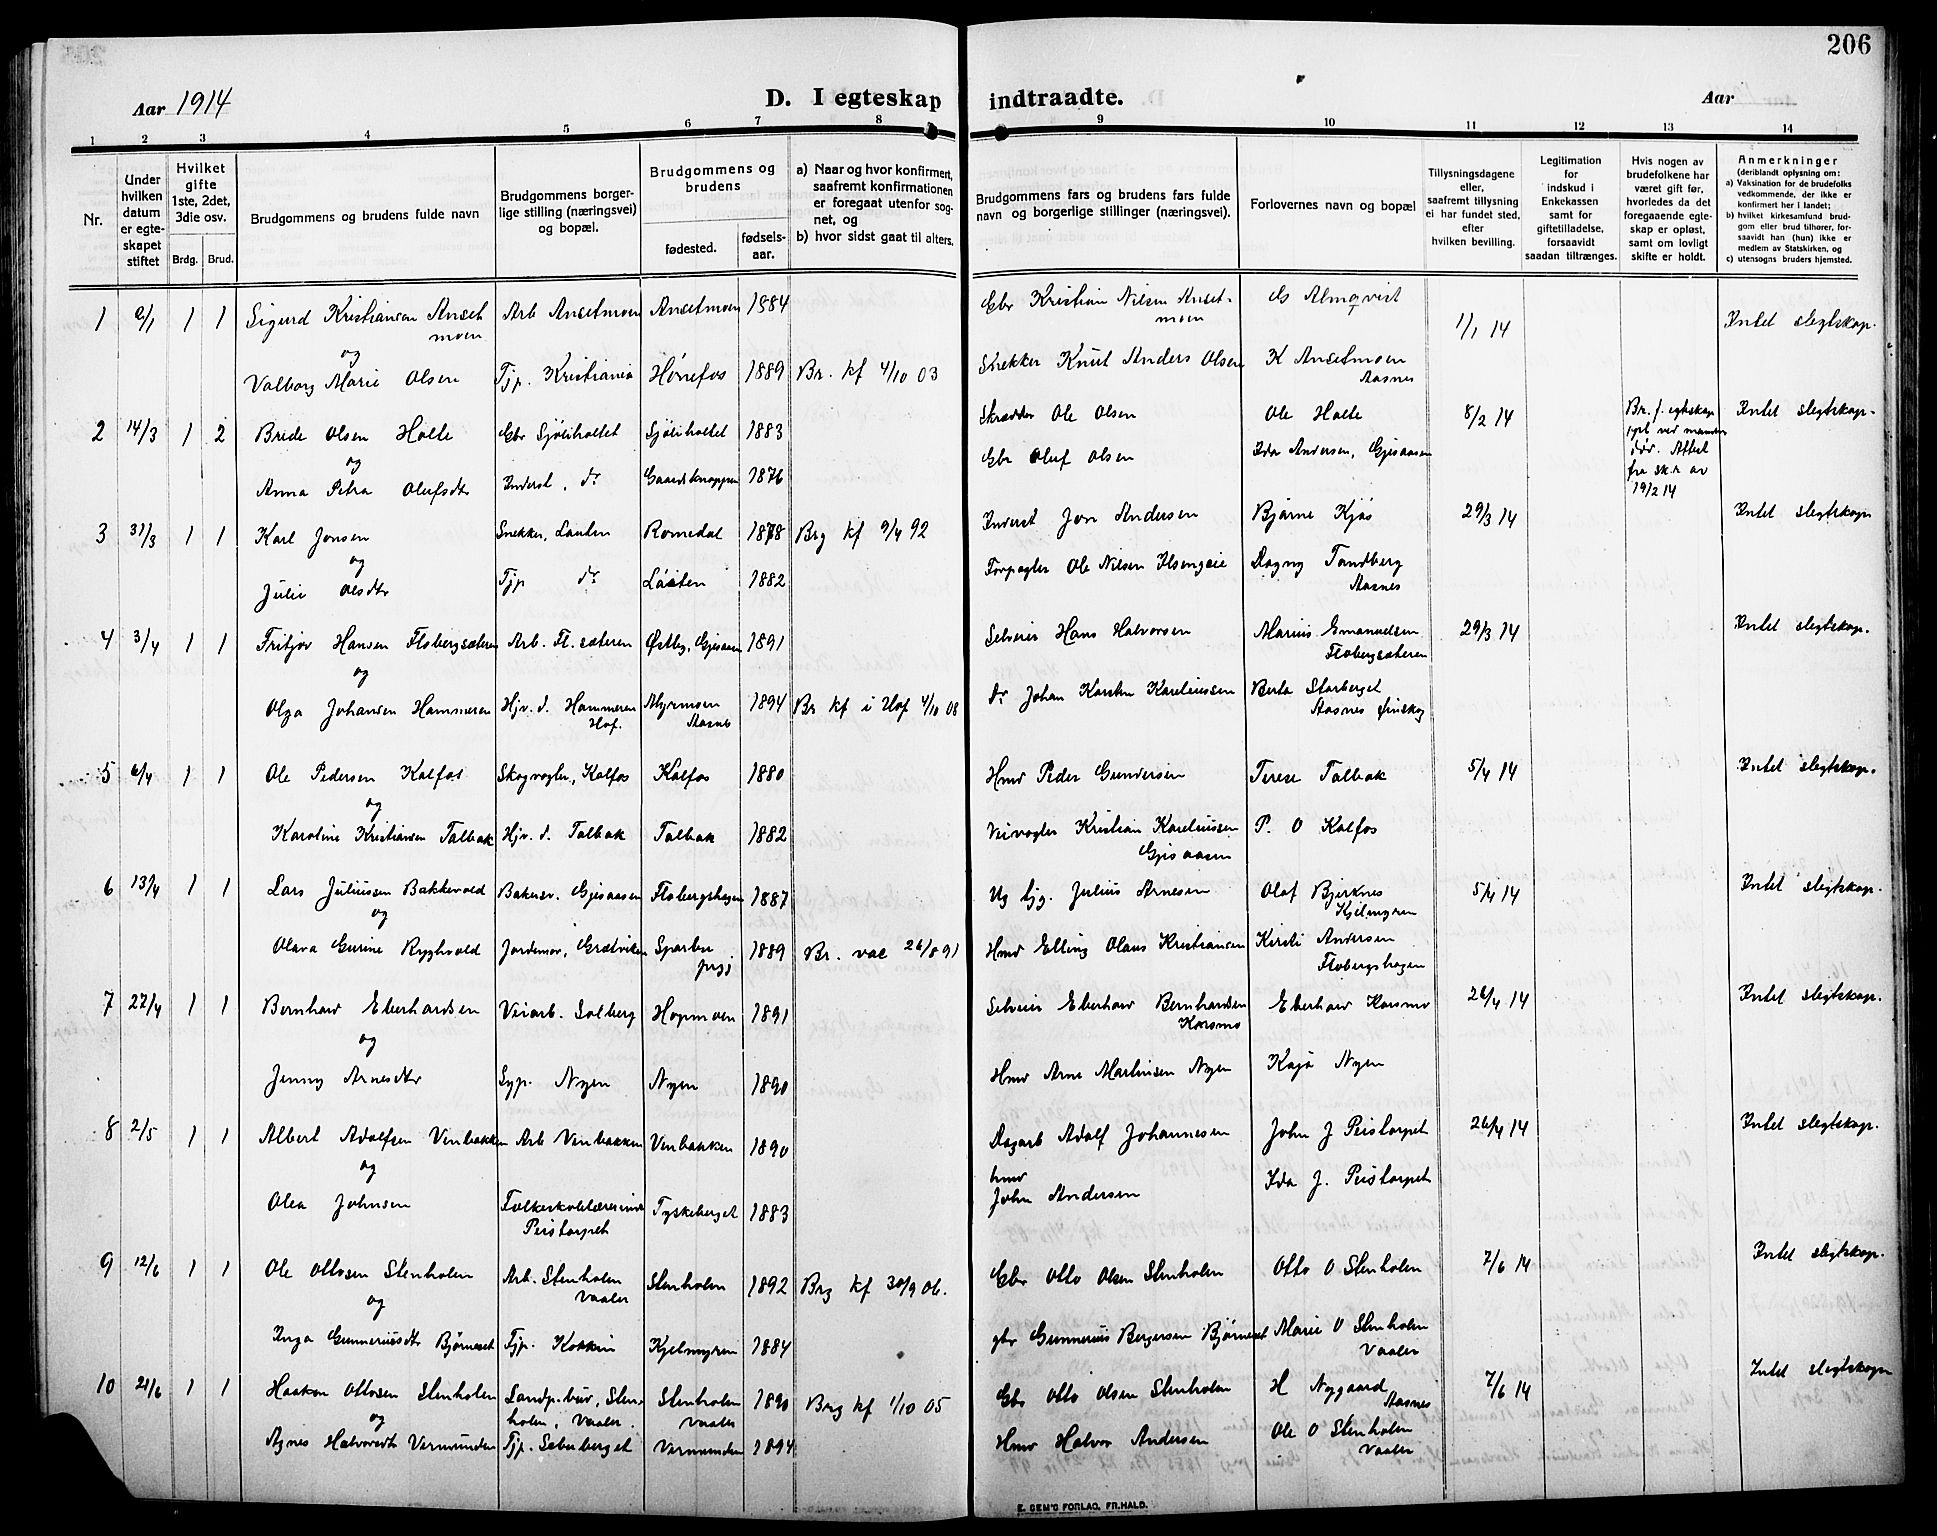 206
Aar 1914
D. I egteskap indtraadte.
Aar
1 2 3 4 5 6 7 8 9 10 11 12 13 14
Nr.
Under hvilken datum er egteskapet stiftet
Hvilket gifte 1ste, 2det, 3die osv.
Brdg. Brud.
Brudgommens og brudens fulde navn
Brudgommens borgerlige stilling (næringsvei) og bopæl.
Brudgommens og brudens
fødested.
fødselsaar.
a) Naar og hvor konfirmert, saafremt konfirmationen er foregaat utenfor sognet, og
b) hvor sidst gaat til alters.
Brudgommens fars og brudens fars fulde navn og borgerlige stillinger (næringsvei).
Forlovernes navn og bopæl
Tillysningsdagene eller, saafremt tillysning ei har fundet sted, efter hvilken bevilling.
Legitimation for indskud i Enkekassen samt for giftetilladelse, forsaavidt saadan tiltrænges.
Hvis nogen av brudefolkene har været gift før, hvorledes da det foregaaende egteskap er opløst, samt om lovligt skifte er holdt.
Anmerkninger (deriblandt oplysning om:
a) Vaksination for de brudefolks vedkommende, der ikke er konfirmert her i landet;
b) hvilket kirkesamfund brudgom eller brud tilhører, forsaavidt han (hun) ikke er medlem av Statskirken, og
c) utensogns bruders hjemsted.
1 1 1 Sigurd Kristiansen Ansetmoen Arb Ansetmoen Ansetmoen 1884 Gbr Kristian Nilsen Ansetmoen G Almqvist 1/1 14 Intet slegtskap.
og
Valborg Marie Olsen Tjp. Kristiania Hønefos 1889 Br. kf 4/10 03 Snekker Knut Anders Olsen K Ansetmoen Aasnes
2 14/3 1 2 Brede Olsen Holte Gbr Sjøliholtet Sjøliholtet 1883 Skrædder Ole Olsen Ole Holte 8/2 14 Br. f. egtskap opl ved mandens død. Attest fra sk.r av 19/2 14 Intet slegtskap.
og
Anna Petra Olufsdtr Inderst, do Gaardsknappen 1876 Gbr Oluf Olsen Ida Andersen, Gjesaasen
3 31/3 1 1 Karl Jonsen Snekker, Løuten Romedal 1878 Brg kf 9/4 92 Inderst Jon Andersen Bjarne Kjøs 29/3 14 Intet slegtskap
og
Julie Olsdtr Tjp do Løiten 1882 Forpagter Ole Nilsen Ilsengeie Dagny Tandberg Aasnes
4 3/4 1 1 Fritjov Hansen Flobergsæteren Arb. Fl. sæteren Østby, Gjesaasen 1891 Selveier Hans Halvorsen Marius Emanuelsen Flobergsæteren 29/3 14 Intet slegtskap.
og
Olga Johansen Hammeren Hjv. d. Hammeren Hof. Myrmoen Aasnes 1894 Br kf i Hof 4/10 08 do Johan Karsten Kareliussen Berta Storberget Aasnes Finskog
5 6/4 1 1 Ole Pedersen Kalfos Skogvogter, Kalfos Kalfos 1880 Hmd Peder Gundersen Terese Talbak 5/4 14 Intet slegtskap.
og
Karoline Kristiansen Talbak Hjv. d. Talbak Talbak 1882 Veivogter Kristian Kareliussen Gjesaasen P. O Kalfos
6 13/4 1 1 Lars Juliussen Bakkevold Bakersv. Gjesaasen Flobergshagen 1887 Ug tjg. Julius Arnesen Olaf Bjerknes Kjelmyren 5/4 14 Intet slegtskap.
og
Olava Gurine Ryghvold Jordemor, Grætviken Sparbu prgj 1889 Br. vac 26/8 91 Hmd Elling Olaus Kristiansen Kirsti Andersen Flobergshagen
7 27/4 1 1 Bernhard Eberhardsen Veiarb. Solberg Hopmoen 1891 Selveier Eberhard Bernhardsen Korsmo Eberhard Korsmo 26/4 14 Intet slegtskap.
og
Jenny Arnesdtr Syp. Nyen Nyen 1890 Hmd Arne Martinsen Nyen Kaja Nyen
8 2/5 1 1 Albert Adolfsen Venbakken Arb Venbakken Venbakken 1890 Dagarb Adolf Johannesen John J Peistorpet 26/4 14 Intet slegtskap.
og
Olea Johnsen Folkeskolelærerinde Peistorpet Tyskeberget 1883 hmd John Andersen Ida J. Peistorpet
9 12/6 1 1 Ole Ottosen Stenholen Arb. Stenholen Vaaler Stenholen 1892 Brg kf 30/9 06. Gbr Otto Olsen Stenholen Otto O Stenholen 7/6 14 Intet slegtskap.
og
Inga Gunneriusdtr Bjørneset Tjp. Kokkin Kjelmyren 1884 gbr Gunnerius Bergersen Bjørneset Marie O Stenholen Vaaler
10 21/6 1 1 Haakon Ottosen Stenholen Landp.bud, Stenholen, Vaaler Stenholen Vaaler 1890 Brg kf 1/10 05 Gbr Otto Olsen Stenholen H Nygaard Aasnes 7/6 14 Intet slegtskap
og
Agnes Halvorsdtr Vermunden Tjp. Seberberget Vermunden 1894 Hmd Halvor Andersen Ole O Stenholen Vaaler
E. SEM'S FORLAG, FR.HALD.